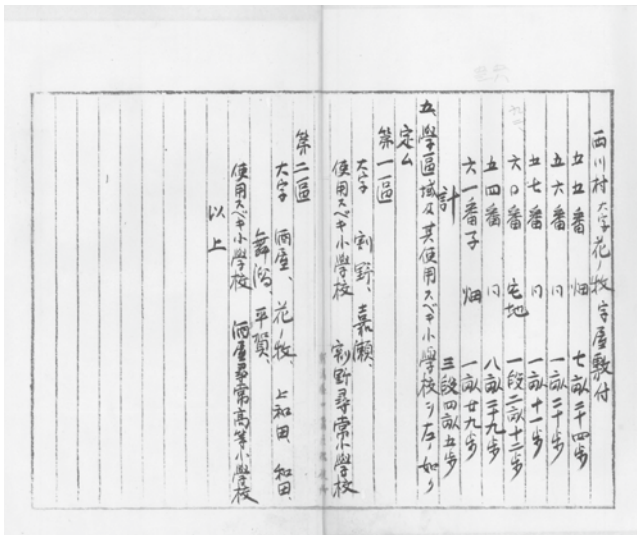 西川村大字花ノ牧字屋敷付
五五番 畑 七畝二十四歩
五六番 〃 一畝二十歩
五七番 〃 一畝十一歩
六〇番 宅地 一段二畝十二歩
五四番 〃 八畝二十九歩
六一番子 畑 一畝廿九歩
計 三段四畝五歩
五、學區域及其使用スベキ小學校ヲ左ノ如ク
定ム
第一區
大字 割野、嘉瀬、
使用スベキ小學校 割野尋常小學校
第二區
大字 酒屋、花ノ牧、上和田、和田、
舞潟、平賀、
使用スベキ小學校 酒屋尋常高等小學校
以上